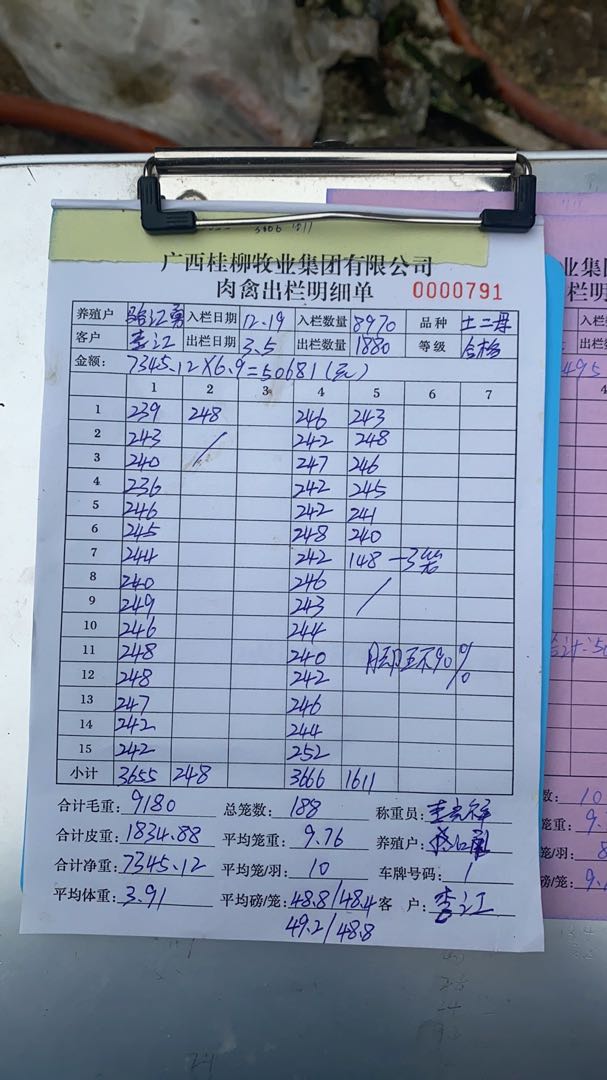 广西桂柳牧业集团有限公司
肉禽出栏明细单 0000791
养殖户 江勇 入栏日期 12.19 入栏数量 8970 品种 土二丹
客户 李江 出栏日期 3.5 出栏数量 1880 等级 合格
金额: 7345.12×6.9=50681(元)
1 2 3 4 5 6 7
1 239 248 246 243
2 243 242 248
3 240 247 246
4 236 242 245
5 246 242 241
6 245 248 240
7 244 242 148 -3笼
8 240 246
9 249 243
10 246 244
11 248 240 脚环90%
12 248 242
13 247 246
14 242 244
15 242 252
小计 3655 248 3666 1611
合计毛重: 9180 总笼数: 188 称重员:
合计皮重: 1834.88 平均笼重: 9.76 养殖户:
合计净重: 7345.12 平均笼/羽: 10 车牌号码: 1
平均体重: 3.91 平均磅/笼: 48.8/48.4 客 户: 李江
49.2/48.8